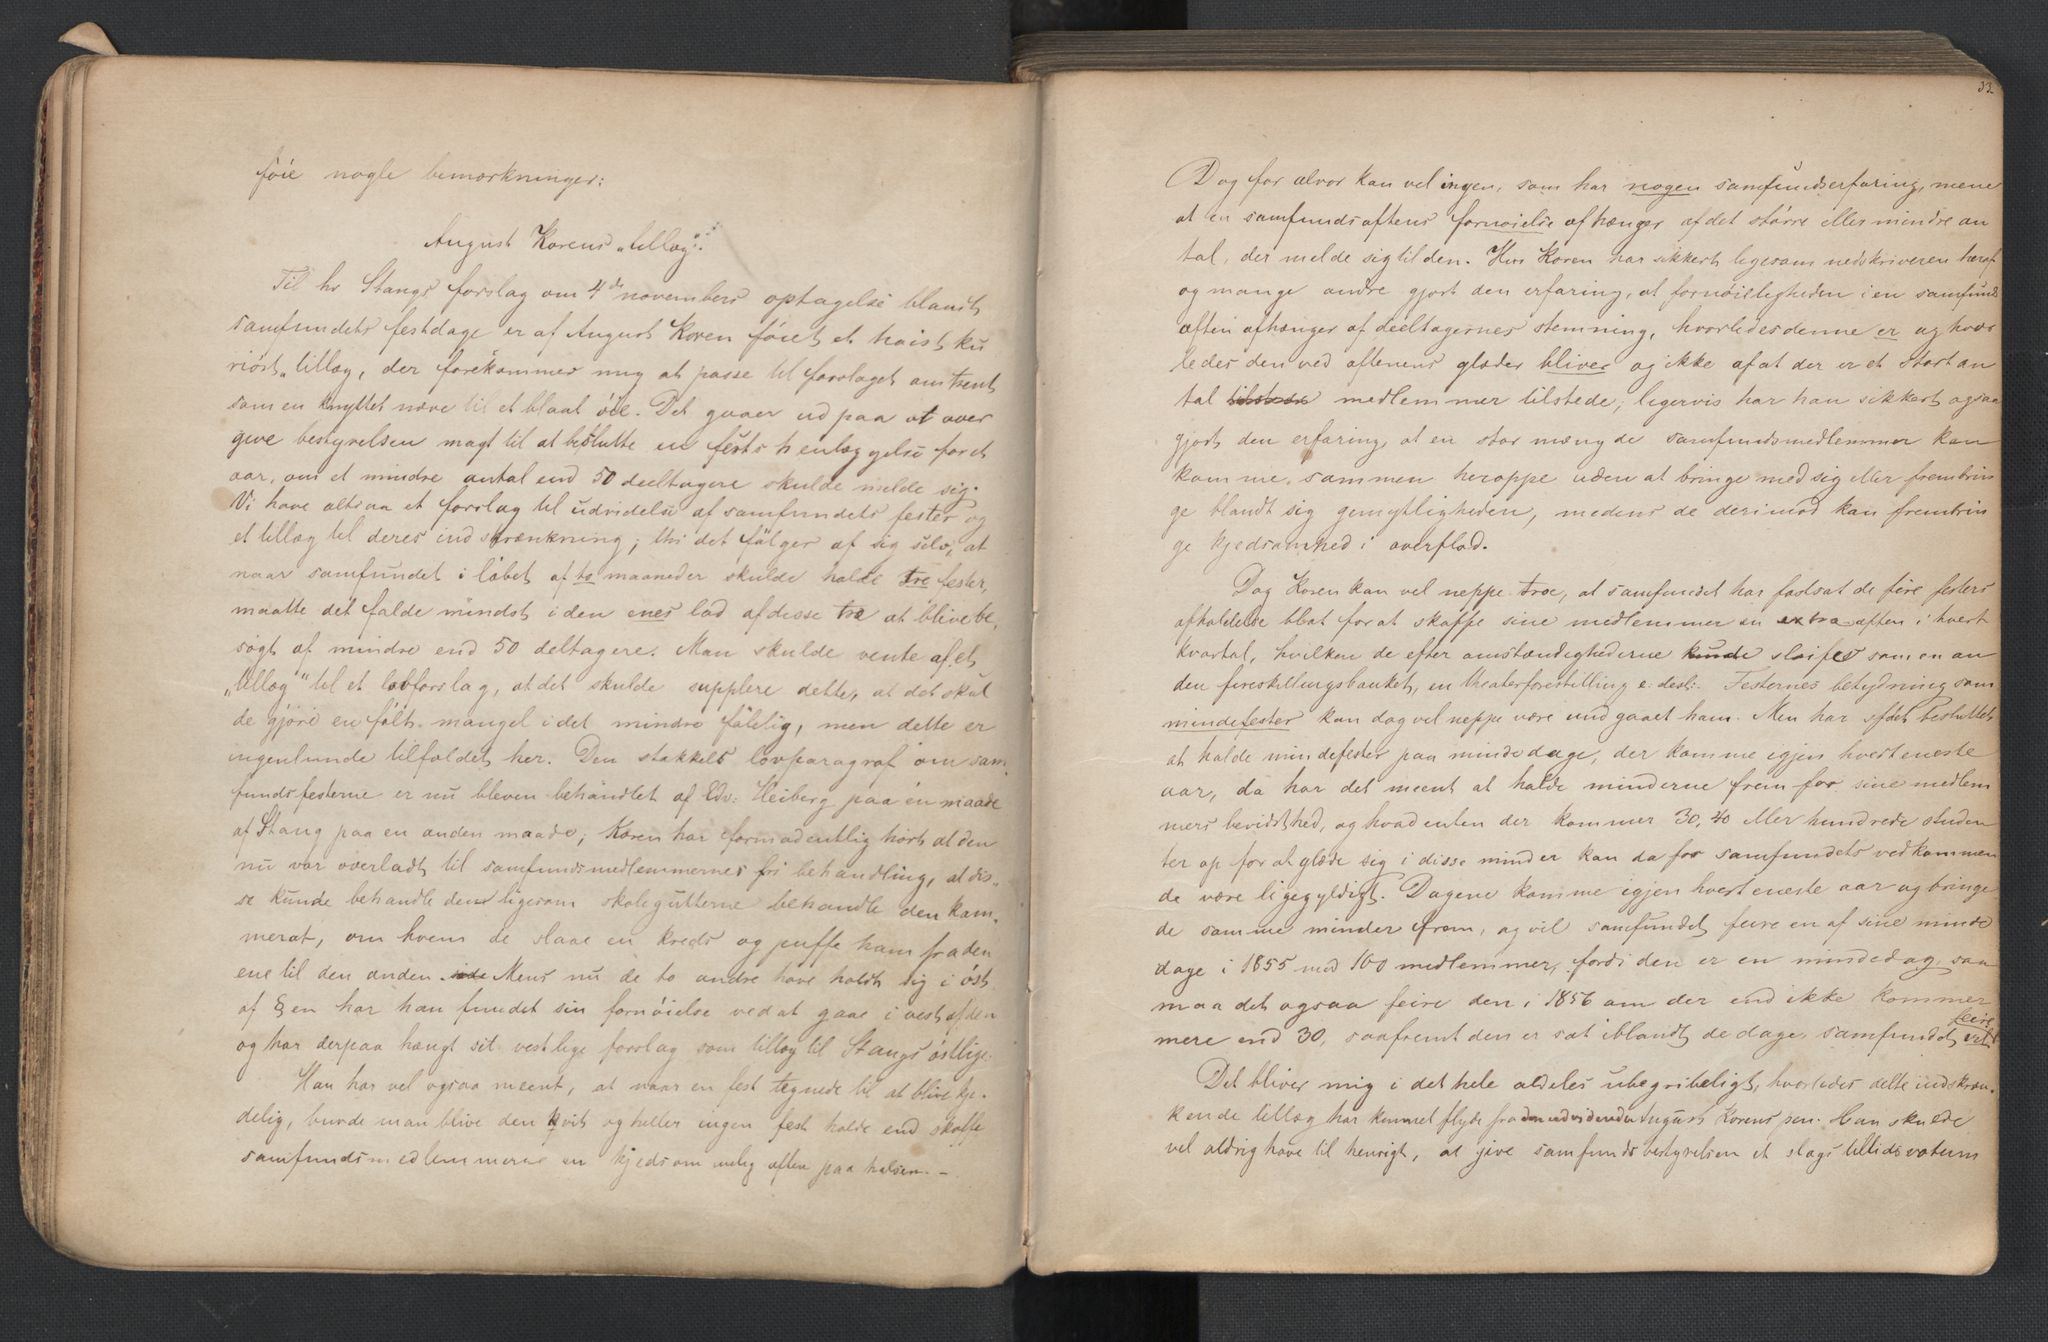 føie nogle bemærkninger:
August Korens „tillæg":
Til hr Stangs forslag om 4de novembers optagelse blandt
samfundets festdage er af August Koren føiet et høist ku
riøst „tillæg, der forekommer mig at passe til forslaget omtrent
som en knyttet næve til et blaat øie. Det gaaer ud paa at over
give bestyrelsen magt til at beslutte en fests henlæggelse for et
aar, om et mindre antal end 50 deeltagere skulde melde sig.
Vi have altsaa et forslag til udvidelse af samfundets fester og
et tillæg til deres indskrænkning; thi det følger af sig selv, at
naar samfundet i løbet af to maaneder skulde holde tre fester,
maatte det falde mindst i den enes lod af disse tre at blive be,
søgt af mindre end 50 deltagere. Man skulde vente af et
„tillæg" til et lovforslag, at det skulde supplere dette, at det skul
de gjøre en følt mangel i det mindre følelig, men dette er
ingenlunde tilfældet her. Den stakkels lovparagraf om sam,
fundsfesterne er nu bleven behandlet af Edv: Heiberg paa én maade
af Stang paa en anden maade; Koren har formodentlig hørt at den
nu var overladt til samfundsmedlemmernes fri behandling, at dis-
se kunde behandle den ligesom skolegutterne behandle den kam,
merat, om hvem de slaae en kreds og puffe ham fra den
ene til den anden. Mens nu de to andre have holdt sig i øst
af § en har han fundet sin fornøielse ved at gaae i vest af den
og har derpaa hængt sit vestlige forslag som tillæg til Stangs østlige.
Han har vel ogsaa meent, at naar en fest tegnede til at blive kje-
delig, burde man blive den kvit og heller ingen fest holde end skaffe
samfundsmedlemmerne en kjedsommelig aften paa halsen. –
33
Dog for alvor kan vel ingen, som har nogen samfundserfaring, mene
at en samfundsaftens fornøielse afhænger af det større eller mindre an
tal, der melde sig til den. Hrr Koren har sikkert ligesom nedskriveren heraf
og mange andre gjort den erfaring, at fornøieligheden i en samfunds
aften afhænger af deeltagernes stemning, hvorledes denne er og hvor
ledes den ved aftenens glæder bliver og ikke af at der er et stort an
tal medlemmer tilstede; ligervis har han sikkert ogsaa
gjort den erfaring, at en stor mængde samfundsmedlemmer kan
komme sammen heroppe uden at bringe med sig eller frembrin
ge blandt sig gemytligheden, medens de derimod kan frembrin
ge kjedsomhed i overflod.
Dog Koren kan vel neppe troe, at samfundet har fastsat de fire festers
afholdelse blot for at skaffe sine medlemmer en extra aften i hvert
kvartal, hvilken de efter omstændighederne kunde sløifes som en an
den forestillingsbanket, en theaterforestilling e. desl: Festernes betydning som
mindefester kan dog vel neppe være undgaaet ham. Men har sfdet besluttet
at holde mindefester paa mindedage, der komme igjen hvert eneste
aar, da har det meent at holde minderne frem for sine medlem
mers bevidsthed, og hvad enten der kommer 30, 40 eller hundrede studen
ter op for at glæde sig i disse minder kan da for samfundets vedkommen
de være ligegyldigt. Dagene komme igjen hvert eneste aar og bringe
de samme minder frem, og vil samfundet feire en af sine minde
dage i 1855 med 100 medlemmer, fordi den er en mindedag, saa
maa det ogsaa feire den i 1856 om der end ikke kommer
mere end 30, saafremt den er sat iblandt de dage, samfundet vil
feire
Det bliver mig i det hele aldeles ubegribeligt, hvorledes dette indskræn-
kende tillæg har kunnet flyde fra den udvidende August Korens pen. Han skulde
vel aldrig have til hensigt, at give samfundsbestyrelsen et slags tillidsvotum